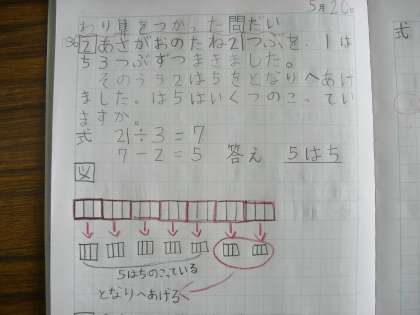 5月20
わり算をつかった問だい
2 あさがおのたね21つぶを、1は
ち3つぶずつまきました。
そのうち2はちをとなりへあげ
ました。はちはいくつのこってい
ますか。
式 21÷3=7
7-2=5 答え 5はち
図
5はちのこっている
となりへあげる
式